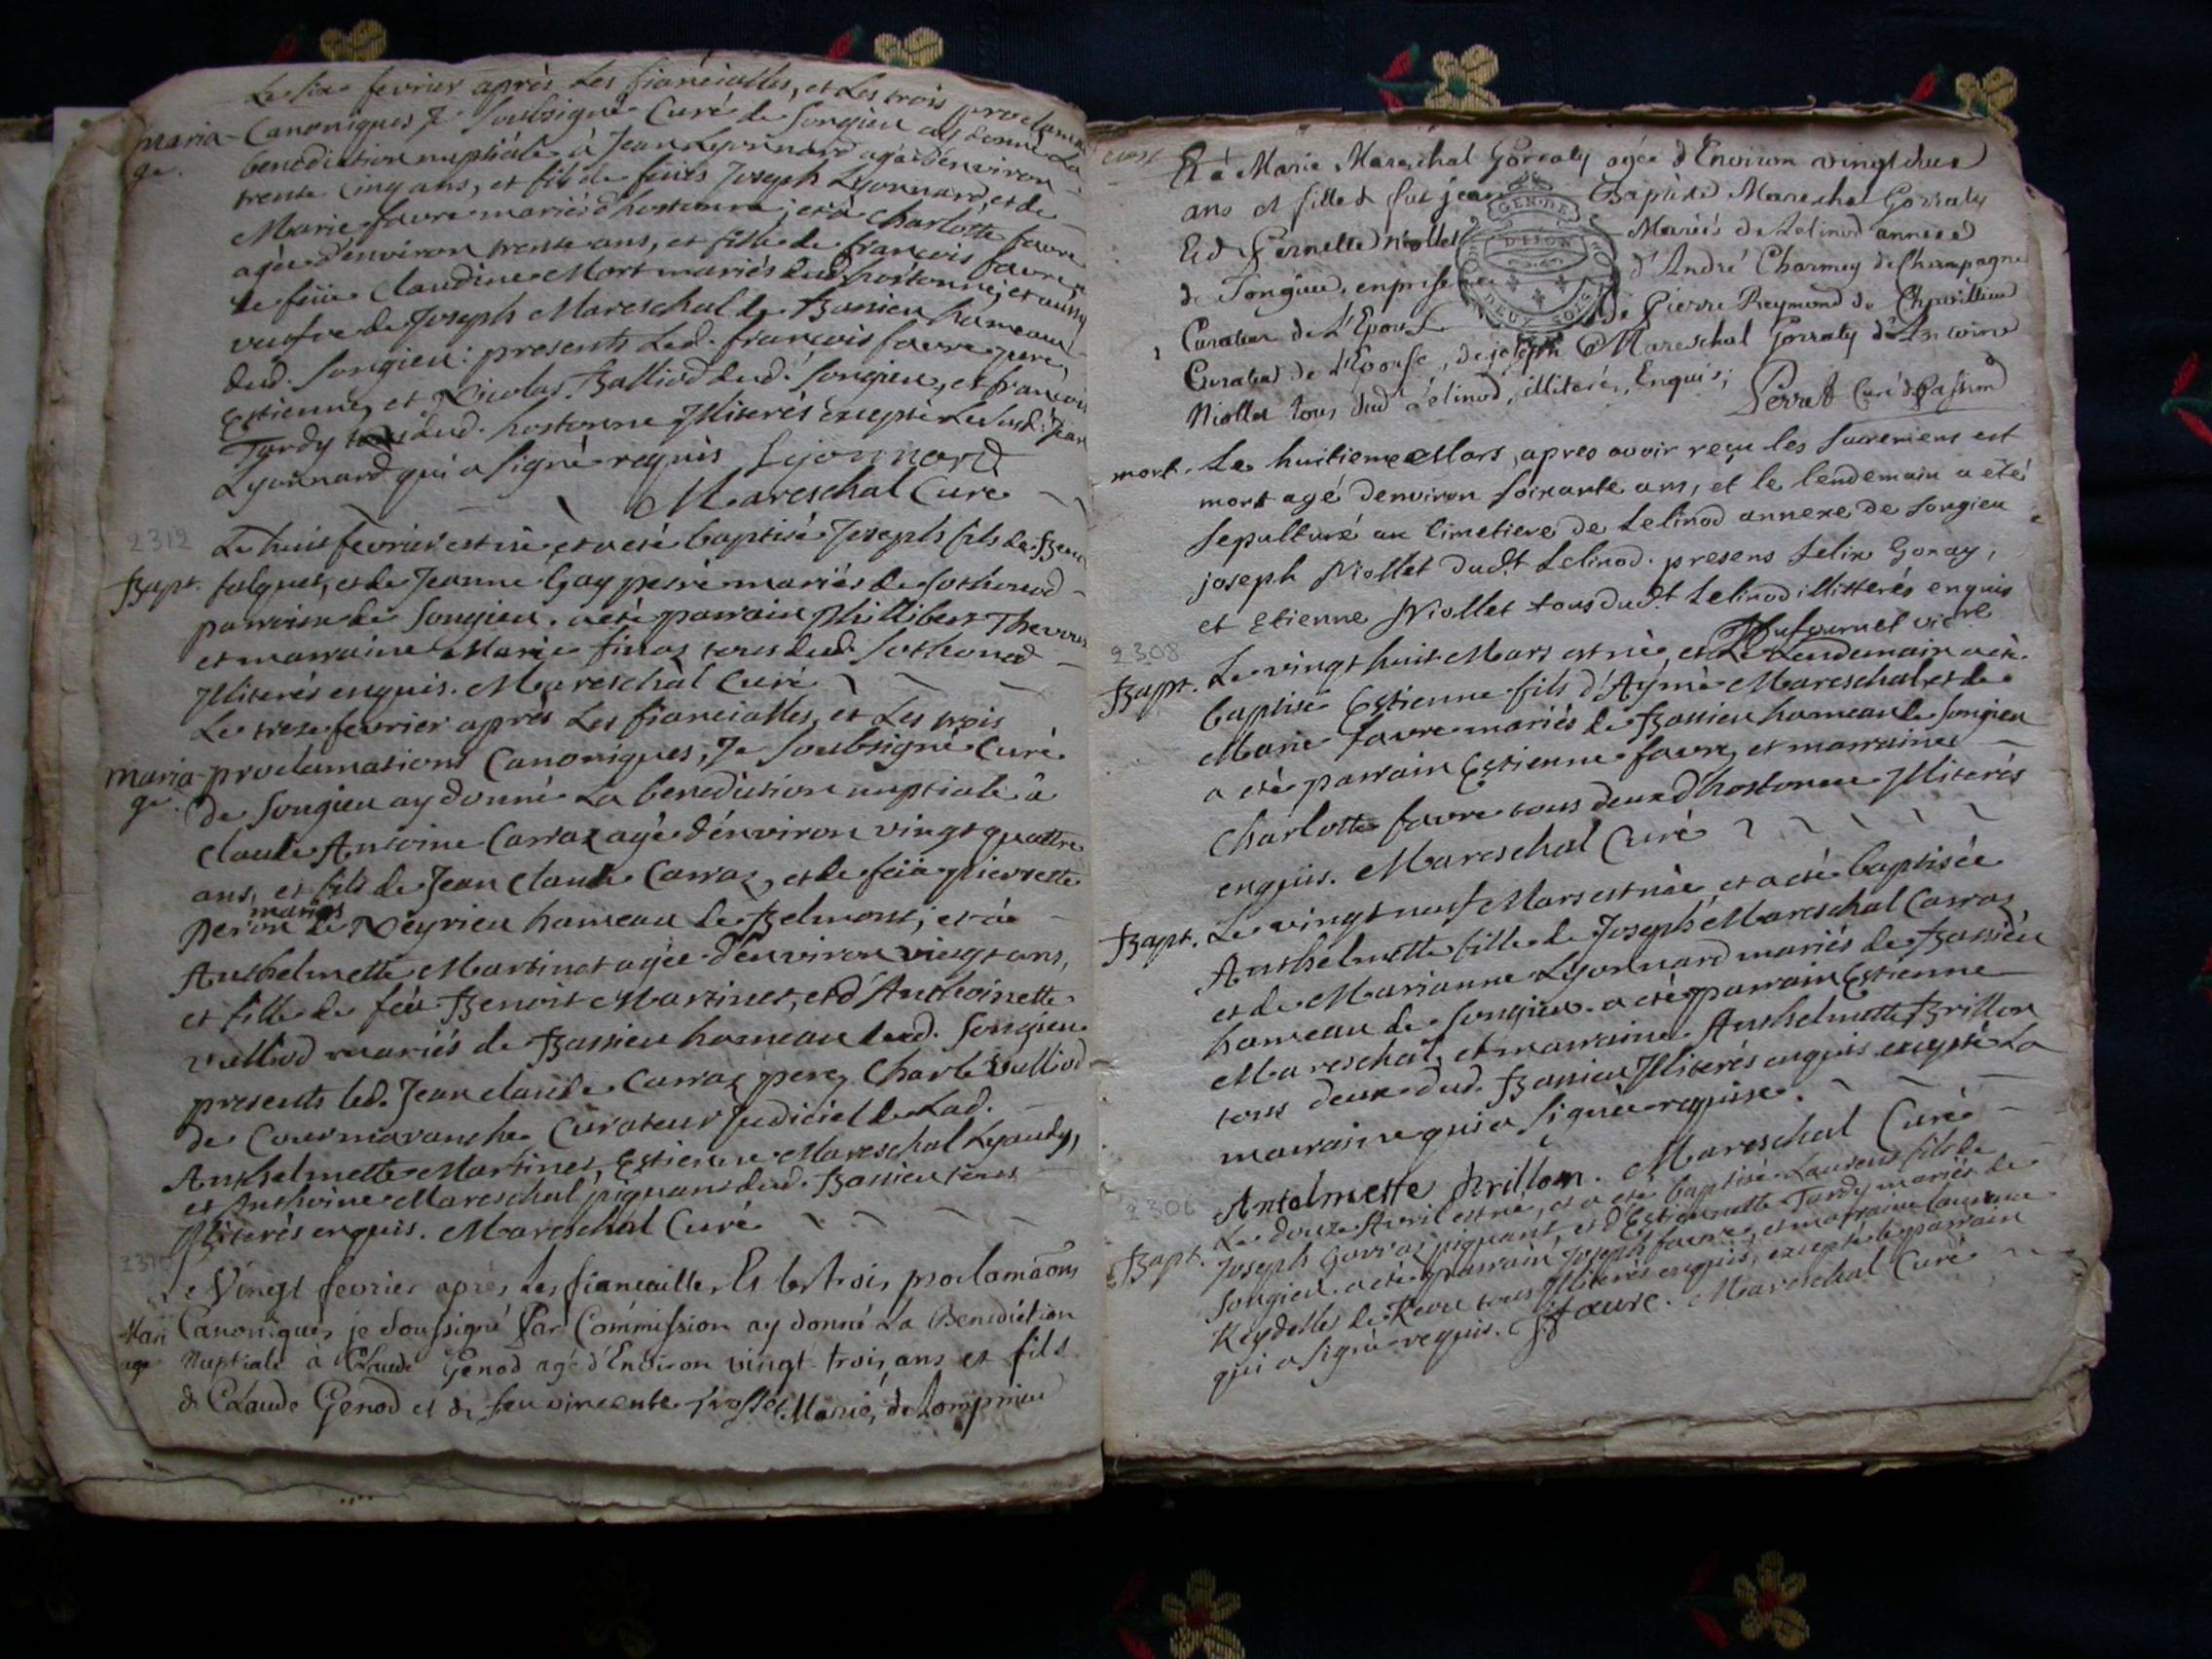 Le six fevrier après Les fianciailles, et Les trois proclama
maria- Canoniques Je Soubsigné Curé de Songieu ay donné La
ge. benediction nuptiale à Jean Lyonnard agé d'environ
trente cinq ans, et fils de feüs Joseph Lyonnard, et de
Marie favre mariés d'hostonne; et à Charlotte favre
agée d'environ trente ans, et fille de francois favre
de feüe Claudine Mort mariés dud. hostonne, et aussy
veufve de Joseph Mareschal de Bassieu hameau
dud. Songieu: presents Led. francois favre pere,
Estienne, et Nicolas Balliod dud. Songieu, et francois
Tardy tous dud. hostonne Jlliterés excepté Le susd. Jean
Lyonnard qui a signé requis Lyonnard
Mareschal Curé
2312
Le huit fevrier est né, et a eté baptisé Joseph fils de Benoi
Bapt. fulquet, et de Jeanne Gay peiré mariés de Sothonod
parroisse de Songieu. a eté parrain Phillibert
et marraine Marie finaz tous dud. Sothonod
Jlliterés enquis. Mareschal Curé
Le treze fevrier après Les fianciailles, et Les trois
maria- proclamations Canoniques, Je Soubsigné Curé
ge. de Songieu ay donné La benediction nuptiale à
Claude Antoine Carraz agé d'environ vingt quattre
ans, et fils de Jean Claude Carraz, et de feüe pierrette
mariés
peron de Neyrieu hameau de Belmont; et à
Anthelmette Martinet agée d'environ vingt ans,
et fille de feu Benoit Martinet, et d'Anthoinette
vulliod mariés de Bassieu hameau dud. Songieu
presents led. Jean claude Carraz pere, Charle vulliod
de Courmaranche Curateur Judiciel de Lad.
Anthelmette Martinet, Estienne Mareschal Lyaudy,
et Anthoine Mareschal piquant dud. Bassieu tous
Jlliterés enquis. Mareschal Curé
Le Vingt fevrier après les fiancailles Et les trois proclamaons
Mari Canoniques je soussigné Par Commission ay donné La Benediction
age Nuptiale à Claude Genod agé d'Environ vingt trois ans et fils
de Claude Genod et de feu vincente Mariés de Lompnieu
Et à Marie Mareschal Gorraty agée d'Environ vingt deux
ans et fille de feu jean Baptiste Mareschal Gorraty
GEN. DE
DIJON
DEUX SOLS
Et de Pernette Niollet Mariés de Lelinod annexe
de Songieu, en presence d'André Charmey de Champagne
Curateur de L'Epoux de Pierre Reymond de
Curateur de L'Epouse, de joseph Mareschal Gorraty d'Antoine
Niollet tous dud.t Lelinod, illiterés, Enquis;
Perret Curé de Passin
mort. Le huitieme Mars, apres avoir reçu les sacremens est
mort agé d'environ soixante ans, et le lendemain a été
sepulturé au cimetiere de Lelinod annexe de Songieu
joseph Niollet dud.t Lelinod. presens felix Goray,
et etienne Niollet tous dud.t Lelinod illitterés enquis
Dufournel vic.re
2308
Bapt. Le vingt huit Mars est né, et Le Lendemain a eté
baptisé Estienne fils d'Aymé Mareschal, et de
Marie favre mariés de Bassieu hameau de Songieu
a eté parrain Estienne favre, et marraine
Charlotte favre tous deux d'hostonne Jlliterés
enquis. Mareschal Curé
Bapt. Le vingt neuf Mars est née et a eté baptisée
Anthelmette fille de Joseph Mareschal Carraz
et de Marianne Lyonnard mariés de Bassieu
hameau de Songieu. a eté parrain Estienne
Mareschal, et marraine Anthelmette Brillon
tous deux dud. Bassieu Jlliterés enquis excepté La
marraine qui a signée requise.
Antelmette brillon. Mareschal Curé
2306
Bapt. Le douze Avril est né, et a eté baptisé Laurent fils de
Joseph Gorraz piquant, et d'Estiennette Tardy mariés de
Songieu. a eté parrain Joseph favre, et marraine Laurence
Reydellet de tous Jlliterés enquis, excepté le parrain
qui a signé requis. J favre. Mareschal Curé